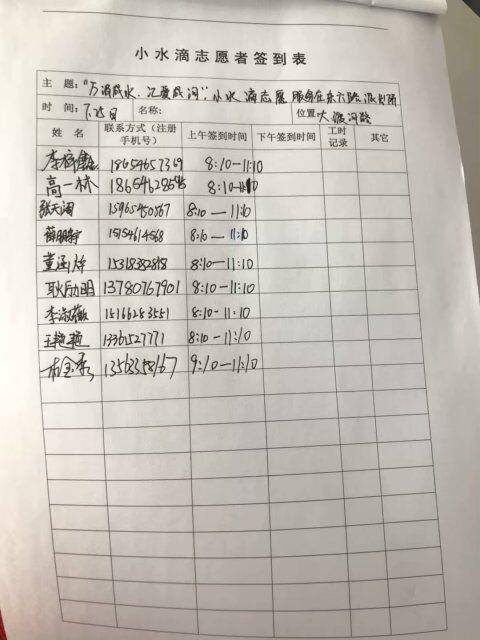 小水滴志愿者签到表
主 题: "万涓成水、汇爱成河";小水滴志愿服务在东六路派出所
时 间: 名称: 位置 大渡河路
姓 名 联系方式(注册手机号) 上午签到时间 下午签到时间 工时记录 其它
李 18654657369 8:10-11:10
高一桥 186546285 8:10-11:10
张天阔 15965450567 8:10-11:10
薛鹏 15154614568 8:10-11:10
董涵 15318382818 8:10-11:10
耿励明 13780767901 8:10-11:10
李淑薇 15166283551 8:10-11:10
王艳艳 13361527771 8:10-11:10
13563358167 9:10-11:10